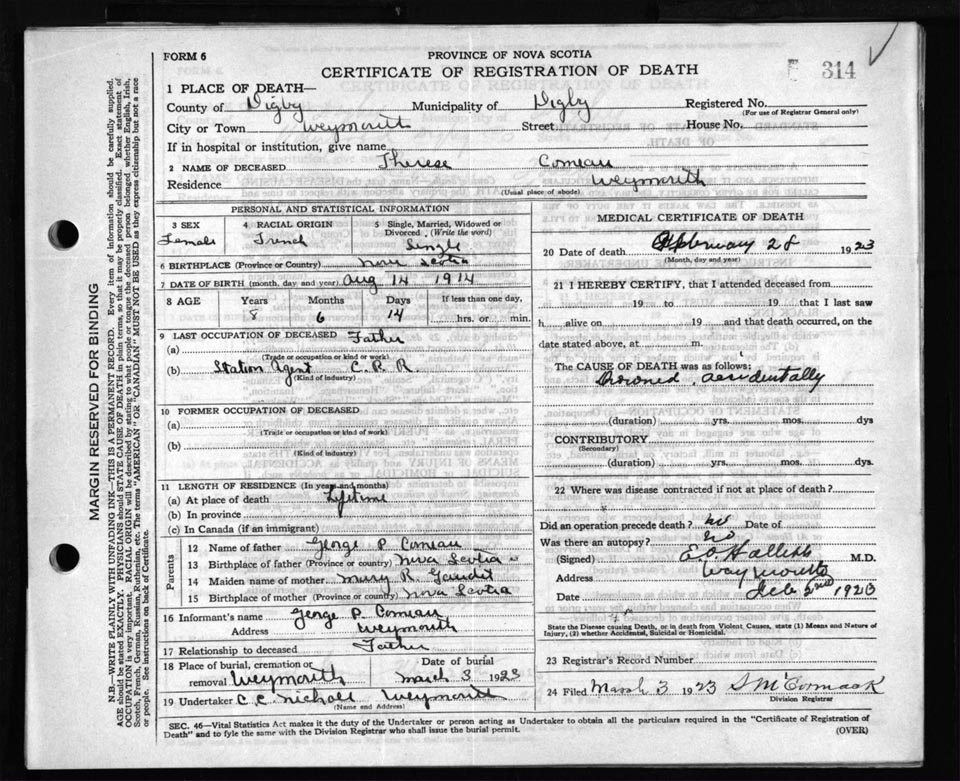 FORM 6
PROVINCE OF NOVA SCOTIA
CERTIFICATE OF REGISTRATION OF DEATH
314
1 PLACE OF DEATH—
County of Digby Municipality of Digby Registered No.
(For use of Registrar General only)
City or Town Weymouth Street House No.
If in hospital or institution, give name
2 NAME OF DECEASED Therese Comeau
Residence Weymouth
(Usual place of abode)
PERSONAL AND STATISTICAL INFORMATION
3 SEX Female
4 RACIAL ORIGIN French
5 Single, Married, Widowed or Divorced, (Write the word) Single
6 BIRTHPLACE (Province or Country) Nova Scotia
7 DATE OF BIRTH (month, day and year) Aug 14 1914
8 AGE Years Months Days If less than one day,
8 6 14 hrs. or min.
9 LAST OCCUPATION OF DECEASED Father
(a)
(Trade or occupation or kind of work)
(b) Station Agent C.P.R
(Kind of industry)
10 FORMER OCCUPATION OF DECEASED
(a)
(Trade or occupation or kind of work)
(b)
(Kind of industry)
11 LENGTH OF RESIDENCE (In years and months)
(a) At place of death Lifetime
(b) In province
(c) In Canada (if an immigrant)
Parents
12 Name of father George P Comeau
13 Birthplace of father (Province or country) Nova Scotia
14 Maiden name of mother Mary R.
15 Birthplace of mother (Province or country) Nova Scotia
16 Informant's name George P Comeau
Address Weymouth
17 Relationship to deceased Father
18 Place of burial, cremation or removal Weymouth
Date of burial March 3 1923
19 Undertaker C. C. Weymouth
(Name and Address)
MEDICAL CERTIFICATE OF DEATH
20 Date of death February 28 1923
(Month, day and year)
21 I HEREBY CERTIFY, that I attended deceased from
19 to 19 that I last saw
h alive on 19 and that death occurred, on the
date stated above, at m.
The CAUSE OF DEATH was as follows:
Drowned, accidentally
(duration) yrs. mos. dys
CONTRIBUTORY
(Secondary)
(duration) yrs. mos. dys.
22 Where was disease contracted if not at place of death?
Did an operation precede death? no Date of
Was there an autopsy? no
(Signed) M.D.
Address Weymouth
Date 1923
State the Disease causing Death, or in death from Violent Causes, state (1) Means and Nature of
Injury, (2) whether Accidental, Suicidal or Homicidal.
23 Registrar's Record Number
24 Filed March 3 1923 McCormack
Division Registrar
SEC. 46—Vital Statistics Act makes it the duty of the Undertaker or person acting as Undertaker to obtain all the particulars required in the "Certificate of Registration of
Death" and to fyle the same with the Division Registrar who shall issue the burial permit. (OVER)
MARGIN RESERVED FOR BINDING
N.B.—WRITE PLAINLY WITH UNFADING INK—THIS IS A PERMANENT RECORD. Every item of information should be carefully supplied.
AGE should be stated EXACTLY. PHYSICIANS should STATE CAUSE OF DEATH in plain terms, so that it may be properly classified. Exact statement of
OCCUPATION is very important. RACIAL ORIGIN will be described by stating to what people or tongue the deceased person belonged, whether English, Irish,
Scotch, French, German, Russian, Ruthenian, etc. The terms "AMERICAN" or "CANADIAN" MUST NOT BE USED as they express citizenship but not a race
or people. See instructions on back of Certificate.